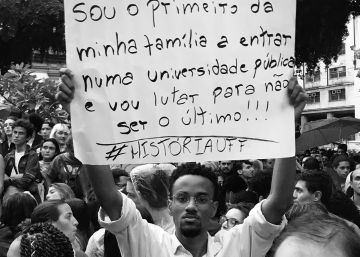 SOU O PRIMEIRO DA
minha família a entrar
numa universidade pública
e vou lutar para não
ser o último!!!
#HISTÓRIAUFF